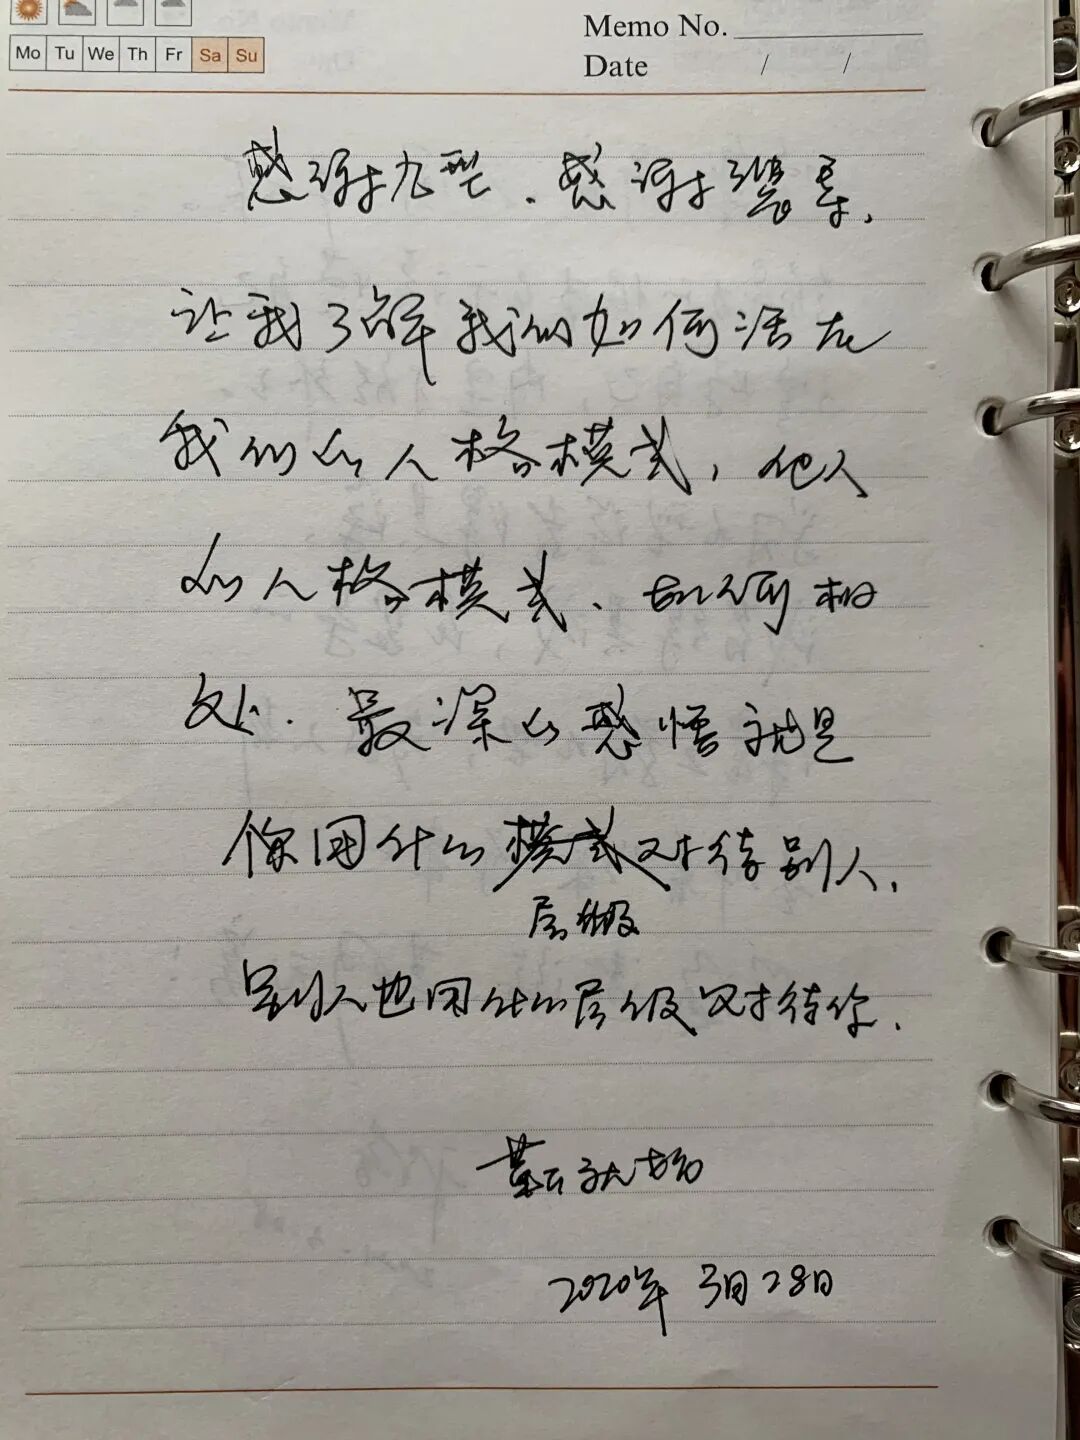 Mo Tu We Th Fr Sa Su
Memo No.
Date / /
感谢九型、感谢
让我了解我们如何活在
我们的人格模式，他人
的人格模式、如何相
处. 最深的感悟就是
你用什么模式对待别人，
层级
别人也用什么层级对待你.
2020年 3月28日